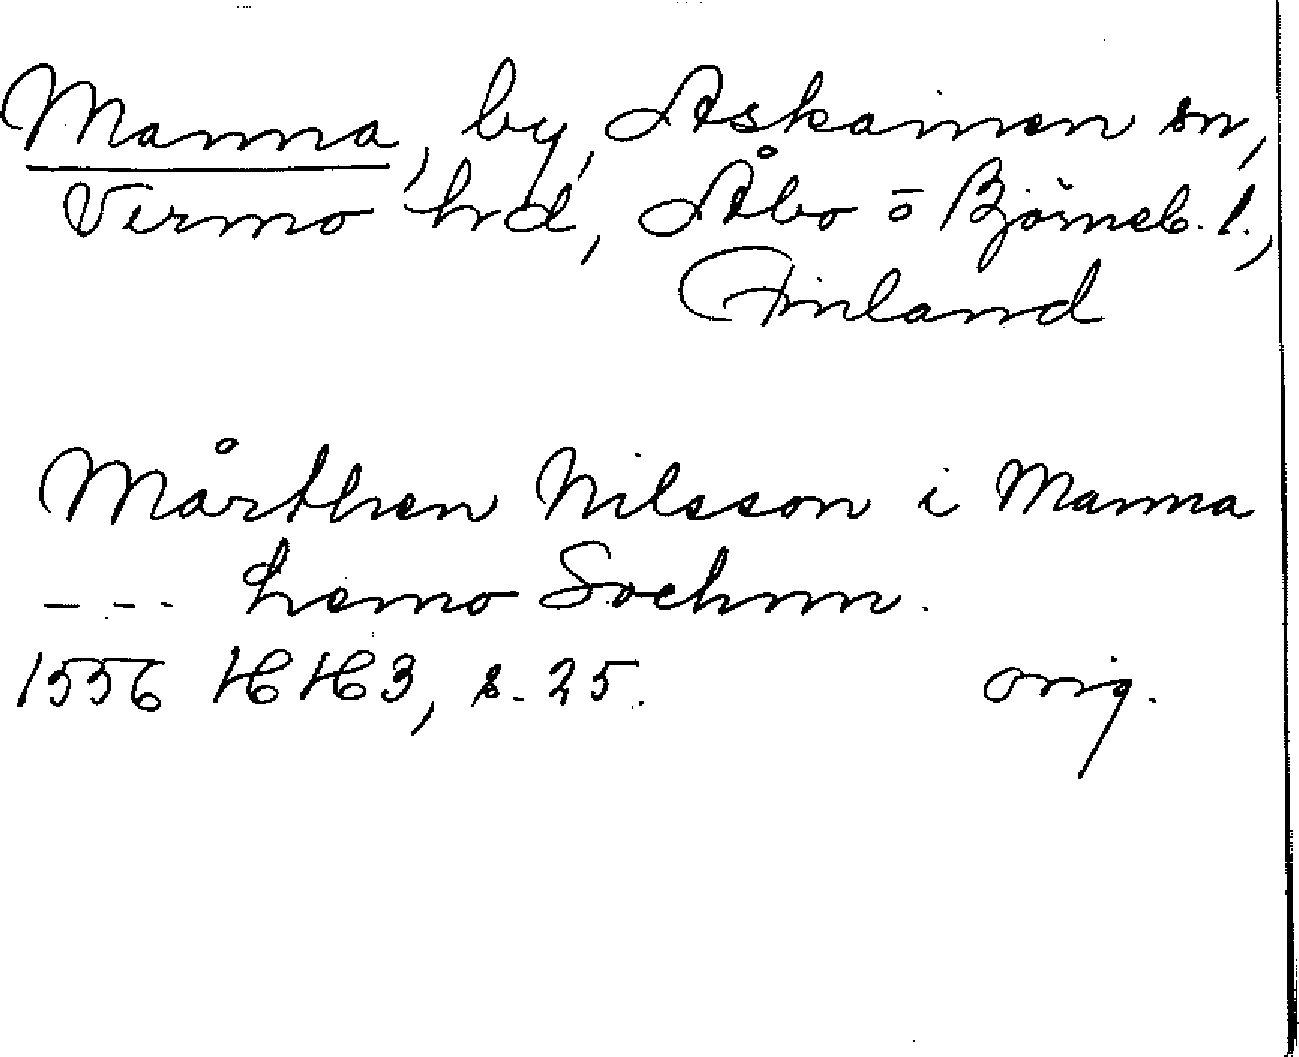 Manna, by, Askainen sn,
Virmo hd, Åbo o Björneb. l.,
Finland
Mårthen Nilsson i Manna
--- Lemo Sochnn.
1556 HH3, s. 25. orig.